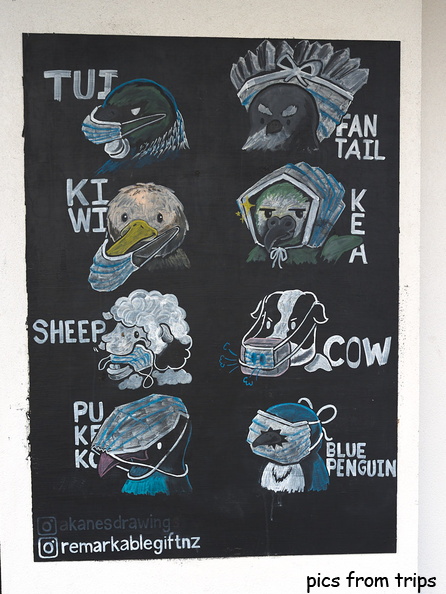 TUI
FAN
TAIL
KI
WI
K
E
A
SHEEP
COW
PU
KE
KO
BLUE
PENGUIN
akanesdrawings
remarkablegiftnz
pics from trips